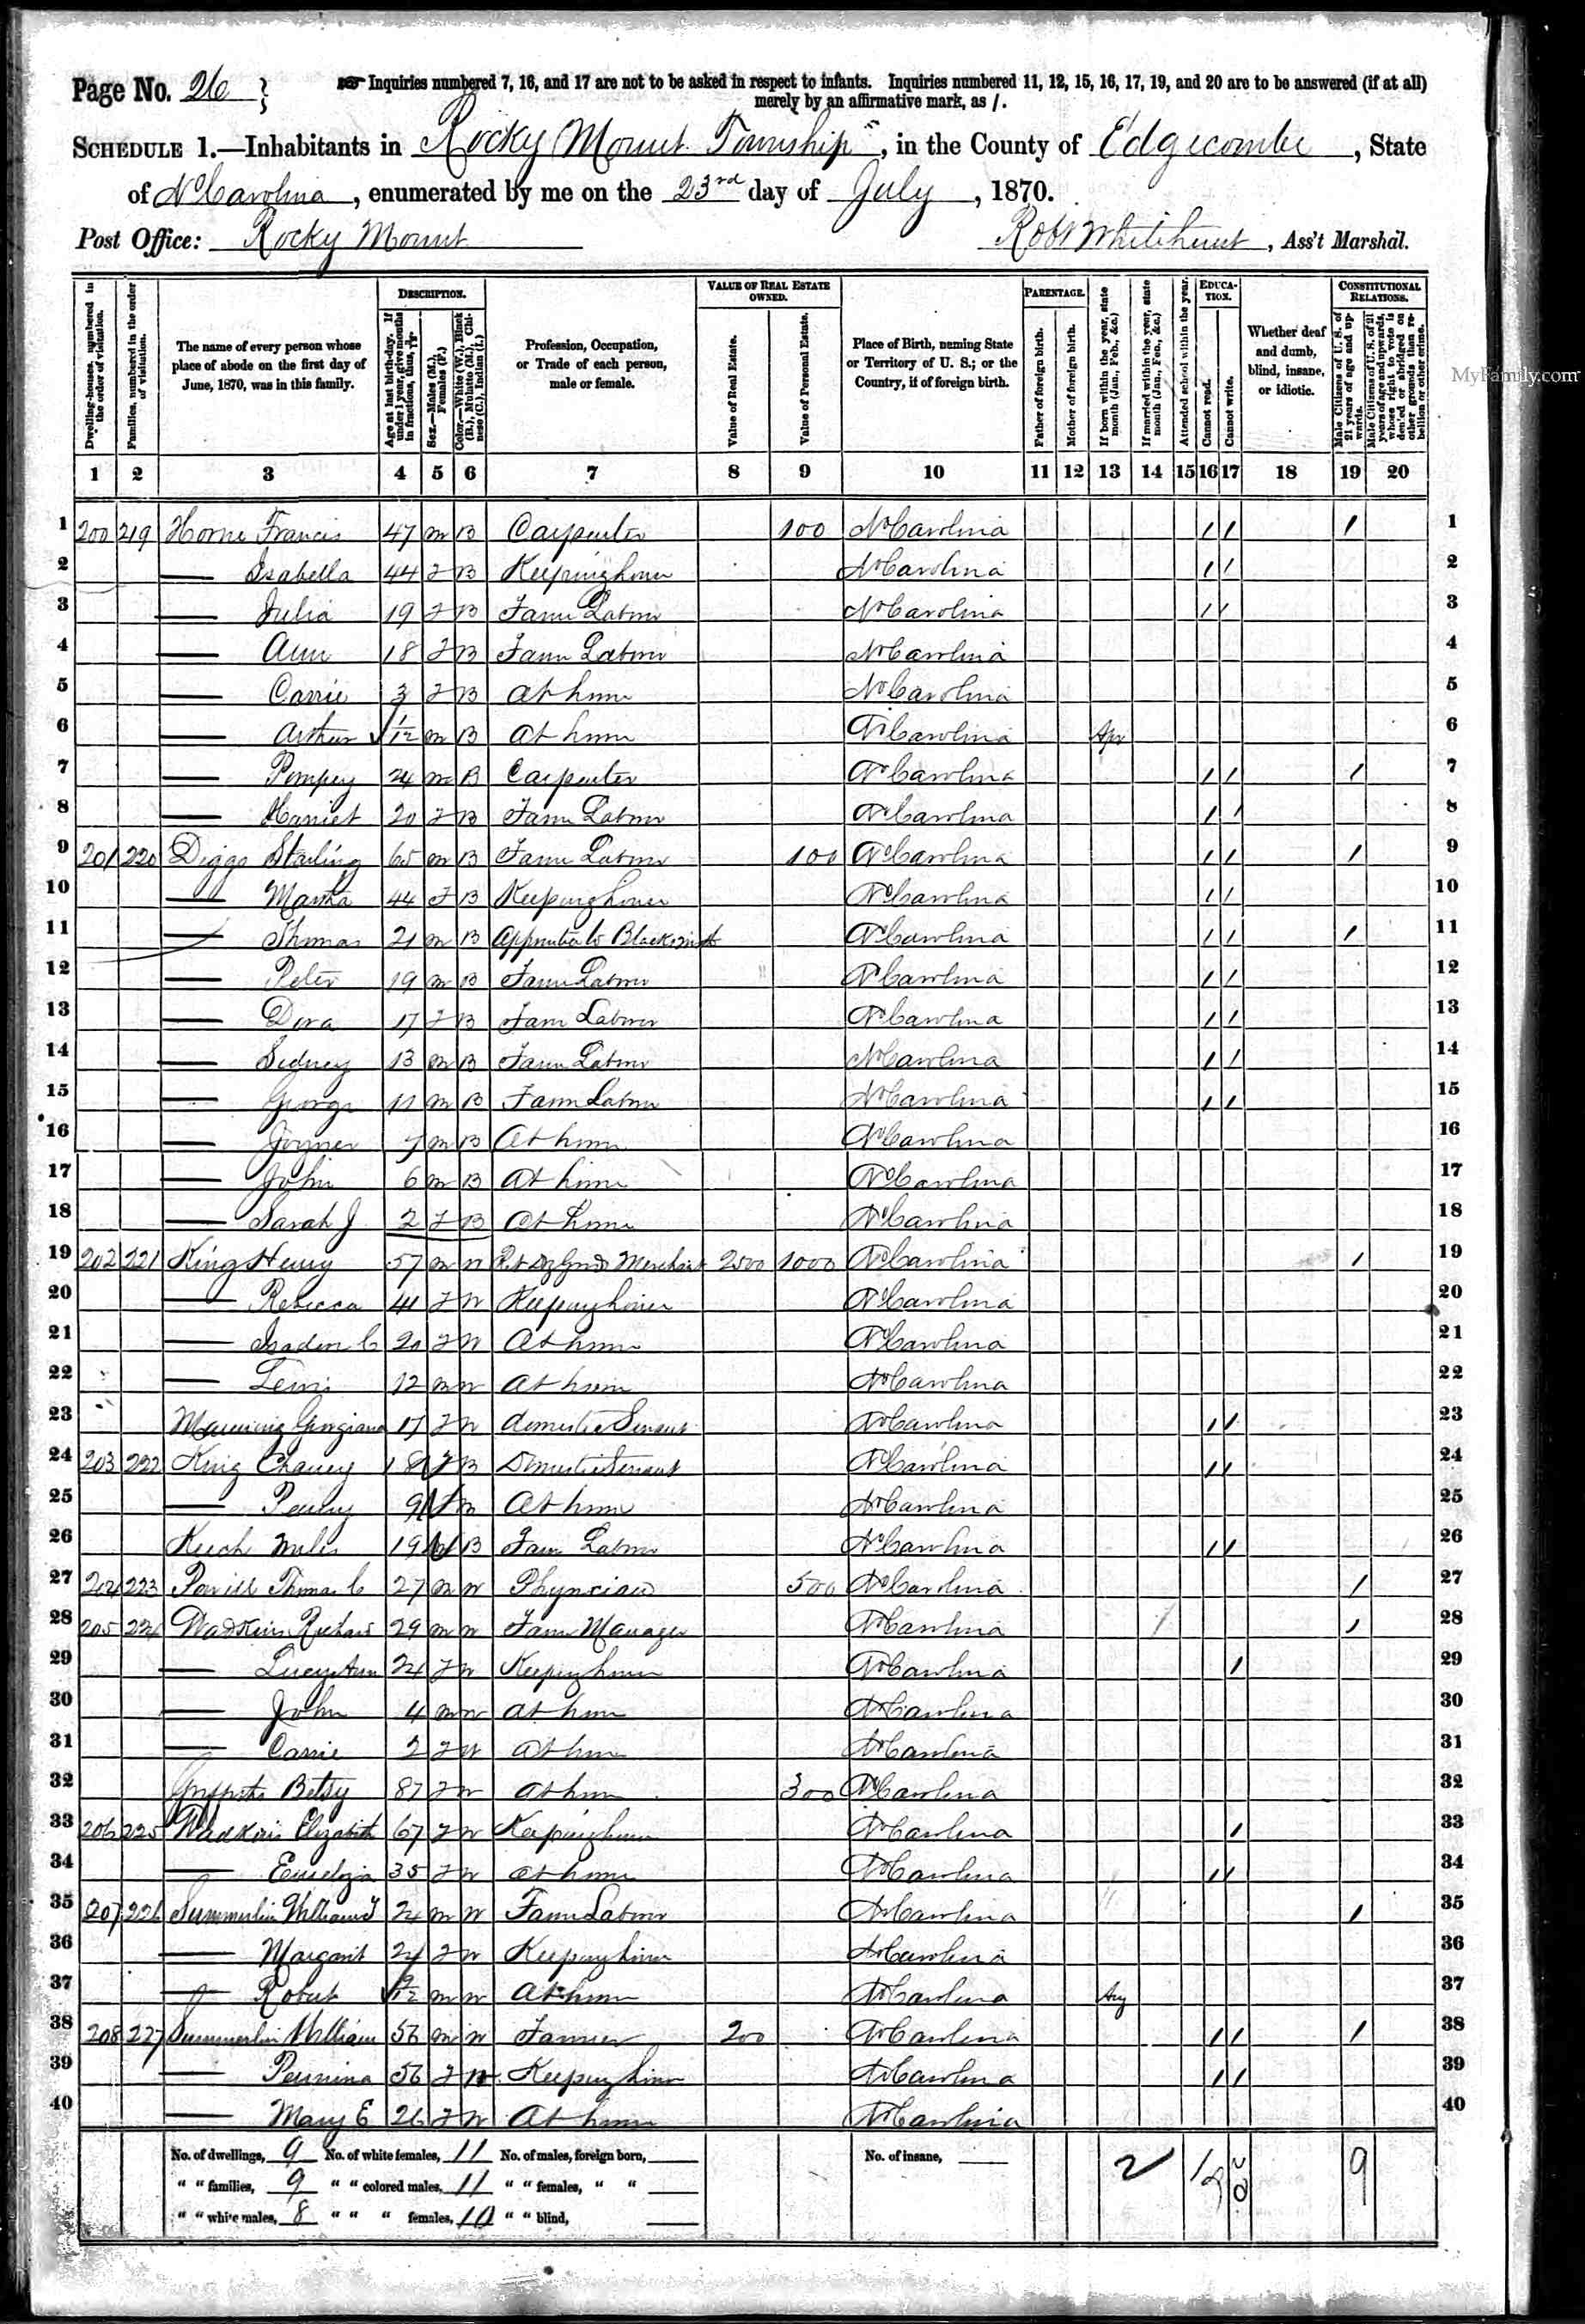 Page No. 26
☞ Inquiries numbered 7, 16, and 17 are not to be asked in respect to infants. Inquiries numbered 11, 12, 15, 16, 17, 19, and 20 are to be answered (if at all)
merely by an affirmative mark, as /.
SCHEDULE 1.—Inhabitants in Rocky Mount Township, in the County of Edgecombe, State
of N Carolina, enumerated by me on the 23rd day of July, 1870.
Post Office: Rocky Mount Robt Whitehurst, Ass't Marshal.
Dwelling-houses, numbered in the order of visitation.
Families, numbered in the order of visitation.
The name of every person whose place of abode on the first day of June, 1870, was in this family.
DESCRIPTION.
Age at last birth-day. If under 1 year, give months in fractions, thus,
Sex.—Males (M.), Females (F.)
Color.—White (W.), Black (B.), Mulatto (M.), Chinese (C.), Indian (I.)
Profession, Occupation, or Trade of each person, male or female.
VALUE OF REAL ESTATE OWNED.
Value of Real Estate.
Value of Personal Estate.
Place of Birth, naming State or Territory of U. S.; or the Country, if of foreign birth.
PARENTAGE.
Father of foreign birth.
Mother of foreign birth.
If born within the year, state month (Jan., Feb., &c.)
If married within the year, state month (Jan., Feb., &c.)
Attended school within the year.
EDUCATION.
Cannot read.
Cannot write.
Whether deaf and dumb, blind, insane, or idiotic.
CONSTITUTIONAL RELATIONS.
Male Citizens of U. S. of 21 years of age and upwards.
Male Citizens of U. S. of 21 years of age and upwards, whose right to vote is denied or abridged on other grounds than rebellion or other crime.
MyFamily.com
1 2 3 4 5 6 7 8 9 10 11 12 13 14 15 16 17 18 19 20
1 200 219 Horne Francis 47 m B Carpenter 100 N Carolina / / / 1
2 — Isabella 44 F B Keeping house N Carolina / / 2
3 — Julia 19 F B Farm Labor N Carolina / / 3
4 — Ann 18 F B Farm Labor N Carolina 4
5 — Carrie 3 F B at home N Carolina 5
6 — Arthur 1/12 m B At home N Carolina Apr 6
7 — Pompey 24 m B Carpenter N Carolina / / / 7
8 — Harriet 20 F B Farm Labor N Carolina / / 8
9 201 220 Diggs Starling 65 m B Farm Labor 100 N Carolina / / / 9
10 — Martha 44 F B Keeping house N Carolina / / 10
11 — Thomas 21 m B Apprentice to Blacksmith N Carolina / / / 11
12 — Peter 19 m B Farm Labor N Carolina / / 12
13 — Dora 17 F B Farm Labor N Carolina / / 13
14 — Sidney 13 m B Farm Labor N Carolina / / 14
15 — George 11 m B Farm Labor N Carolina / / 15
16 — Joyner 7 m B At home N Carolina 16
17 — John 6 m B At home N Carolina 17
18 — Sarah J 2 F B At home N Carolina 18
19 202 221 King Henry 57 m W Merchant 2500 1000 N Carolina / 19
20 — Rebecca 41 F W Keeping house N Carolina 20
21 — 20 F W At home N Carolina 21
22 — Lewis 12 m W At home N Carolina 22
23 Georgiana 17 F W domestic Servant N Carolina / / 23
24 203 222 King Chancy 18 F B Domestic Servant N Carolina / / 24
25 — Penny 9 B At home N Carolina 25
26 Keech Miles 19 M B Farm Labor N Carolina / / 26
27 204 223 Thomas C 27 m W Physician 500 N Carolina / 27
28 205 224 Wadkins Richard 29 m W Farm Manager N Carolina / 28
29 — Lucy Ann 24 F W Keeping house N Carolina / 29
30 — John 4 m W at home N Carolina 30
31 — Carrie 2 F W at home N Carolina 31
32 Betsy 87 F W at home 300 N Carolina 32
33 206 225 Wadkins Elizabeth 67 F W Keeping house N Carolina / 33
34 — 35 F W at home N Carolina / / 34
35 207 226 Summerlin William T 24 m W Farm Labor N Carolina / 35
36 — Margaret 24 F W Keeping house N Carolina 36
37 — Robert 9/12 m W At home N Carolina Aug 37
38 208 227 Summerlin William 56 m W Farmer 200 N Carolina / / / 38
39 — Pennina 56 F W Keeping house N Carolina / / 39
40 — Mary E 26 F W At home N Carolina 40
No. of dwellings, 9 No. of white females, 11 No. of males, foreign born, No. of insane,
" " families, 9 " " colored males, 11 " " females, " "
" " white males, 8 " " " females, 10 " " blind,
2 9